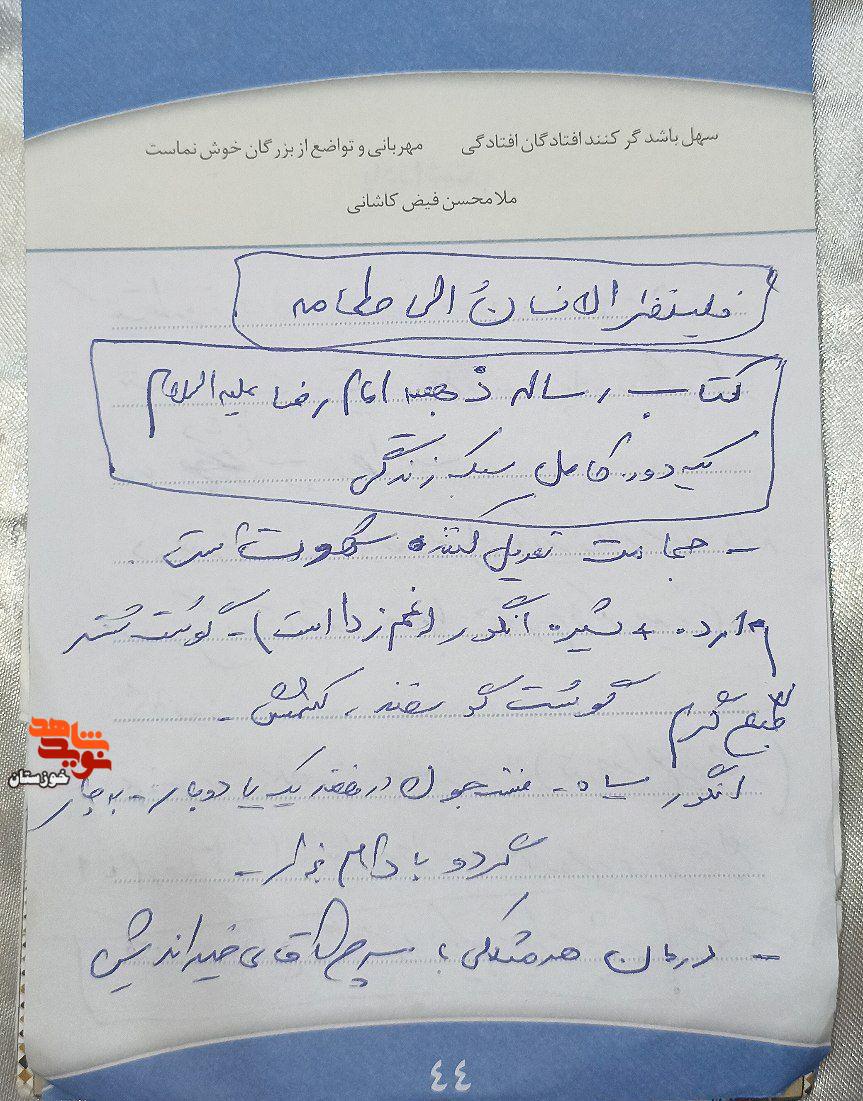 سهل باشد گر کنند افتادگان افتادگی مهربانی و تواضع از بزرگان خوش نماست
ملا محسن فیض کاشانی
فلینظر الانسانُ الی طعامه
کتاب رساله ذهبیه امام رضا علیه السلام
یک دوره کامل سبک زندگی
- حجامت تعدیل کننده شهوت است
ارده + شیره انگور (غم زدا است) - گوشت شتر
طبع گرم گوشت گوسفند، کشمش -
انگور سیاه - در هفته یک یا دو بار - به جای
گردو بادام بخورید -
- درمان هر مشکلی با آقای خیراندیش
نوید شاهد
خوزستان
٤٤